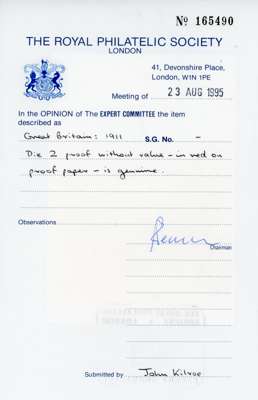 No 165490
THE ROYAL PHILATELIC SOCIETY
LONDON
41, Devonshire Place,
London, W1N 1PE
Meeting of 23 AUG 1995
In the OPINION of The EXPERT COMMITTEE the item
described as
Great Britain: 1911 S.G. No. -
Die 2 proof without value - in red on
proof paper - is genuine.
Observations
Chairman
Submitted by John Kilroe